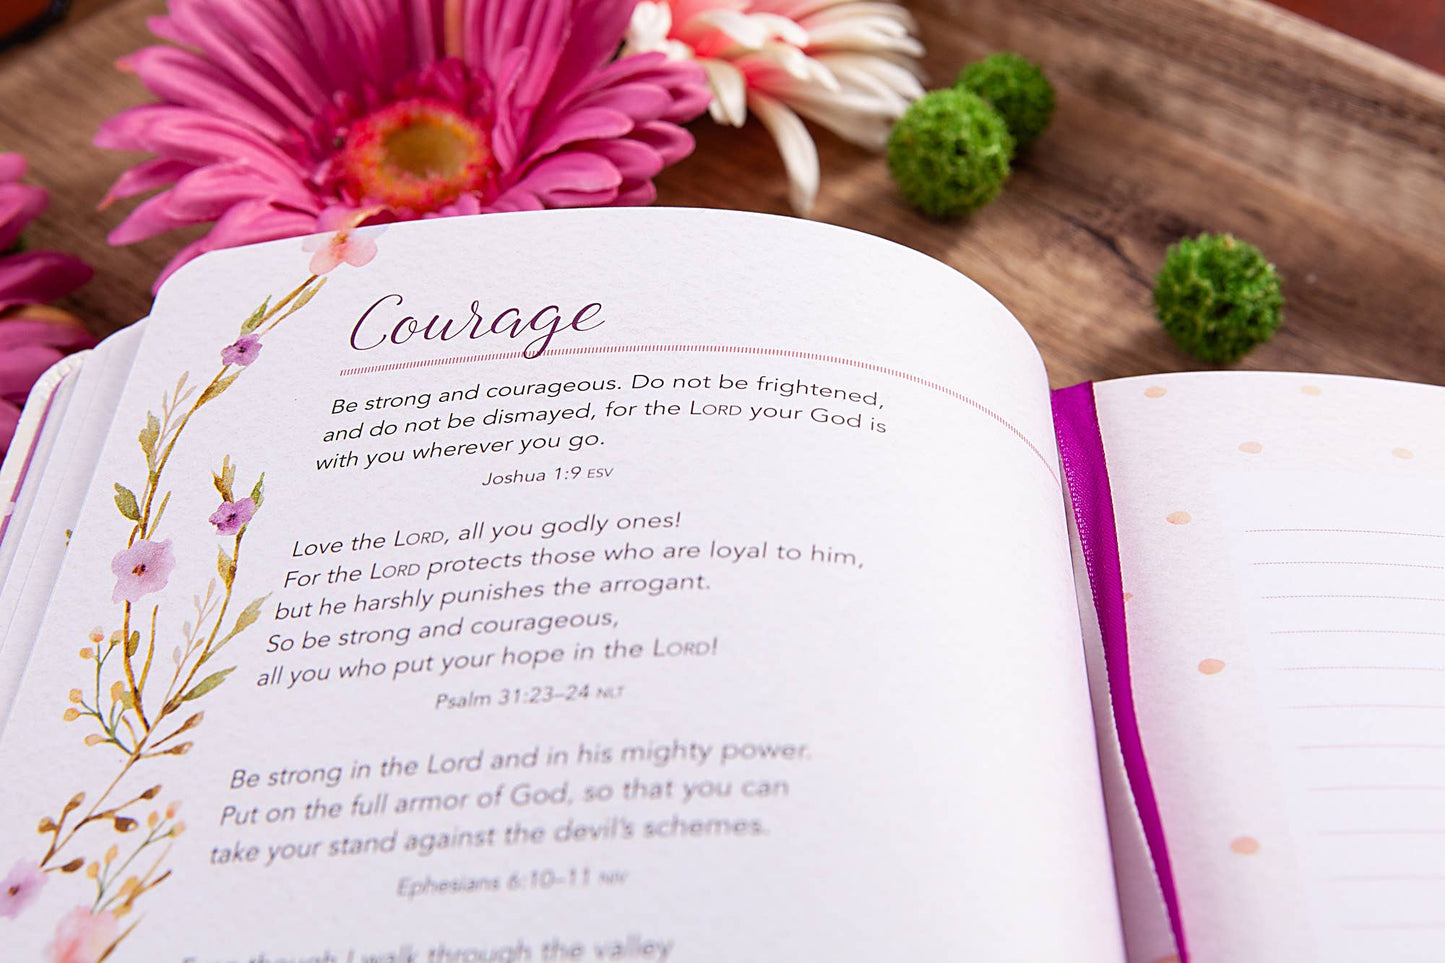 Courage
Be strong and courageous. Do not be frightened,
and do not be dismayed, for the LORD your God is
with you wherever you go.
Joshua 1:9 ESV
Love the LORD, all you godly ones!
For the LORD protects those who are loyal to him,
but he harshly punishes the arrogant.
So be strong and courageous,
all you who put your hope in the LORD!
Psalm 31:23–24 NLT
Be strong in the Lord and in his mighty power.
Put on the full armor of God, so that you can
take your stand against the devil's schemes.
Ephesians 6:10–11 NIV
Even though I walk through the valley